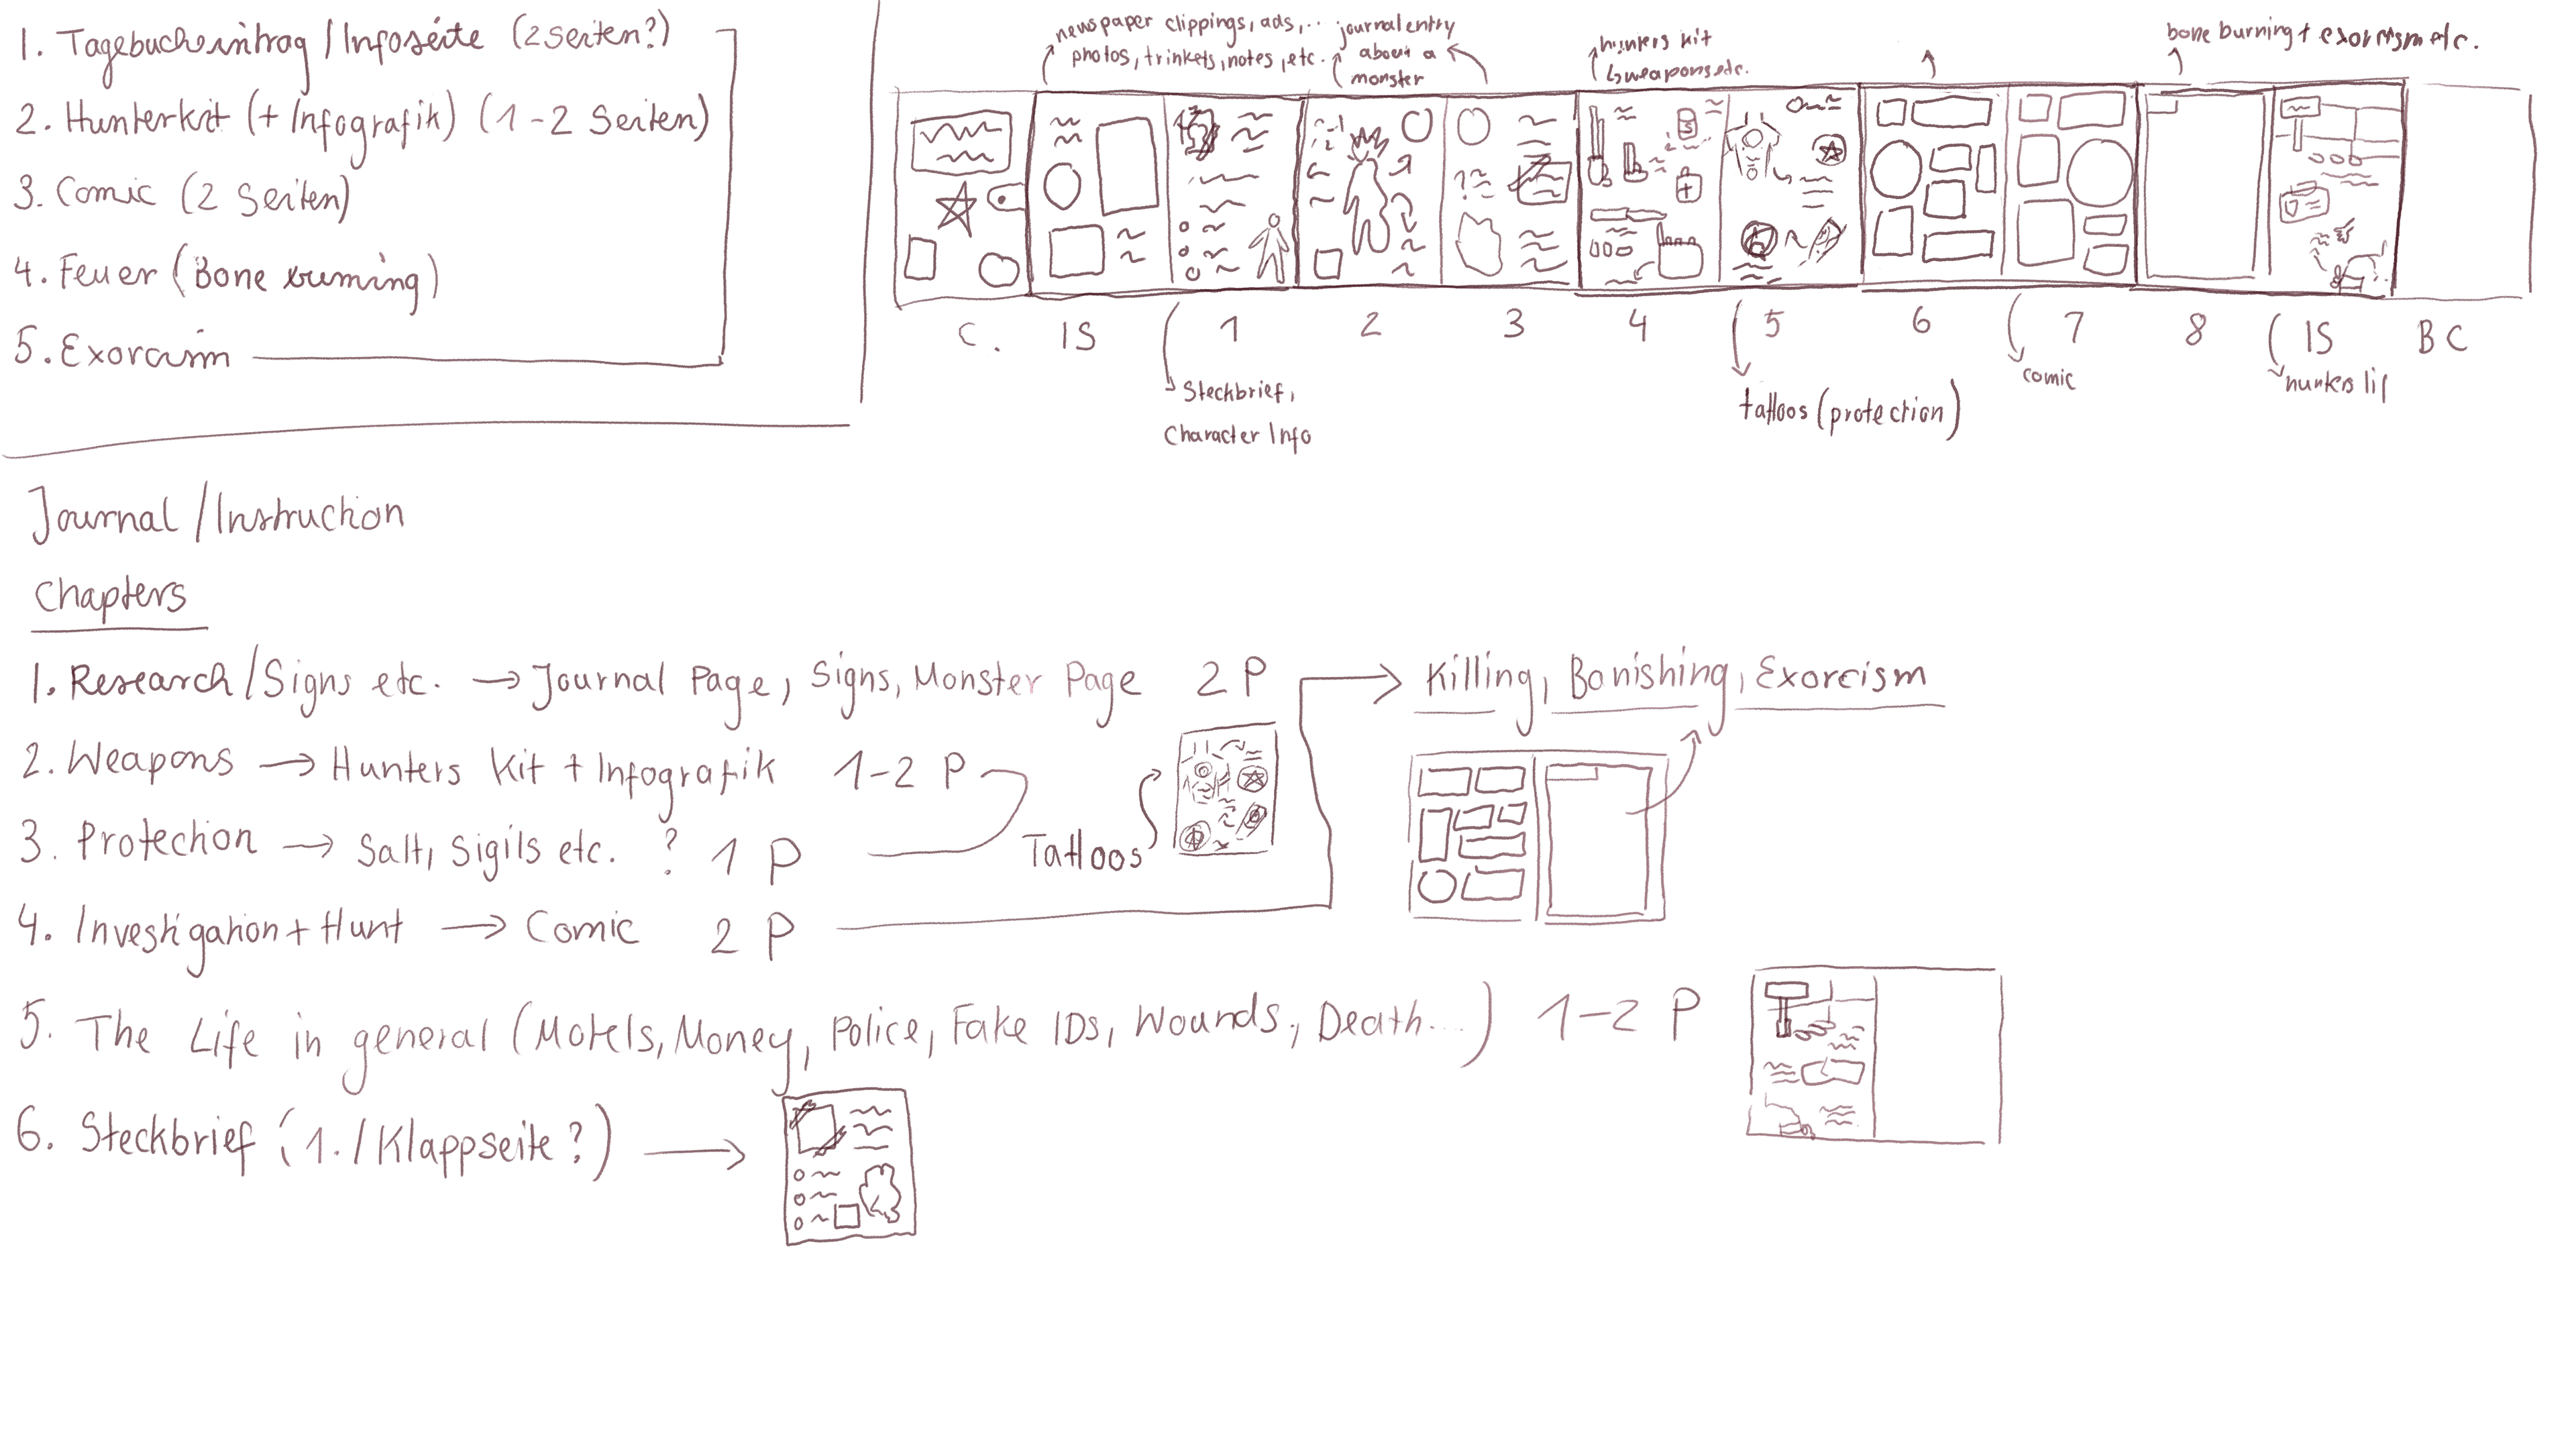 1. Tagebucheintrag / Infoseite (2 Seiten?)
2. Hunterkit (+ Infografik) (1-2 Seiten)
3. Comic (2 Seiten)
4. Feuer (Bone burning)
5. Exorcism
newspaper clippings, ads, ..
photos, trinkets, notes, etc.
journal entry
about a
monster
hunters kit
↳ weapons etc.
bone burning + exorcism etc.
C. IS 1 2 3 4 5 6 7 8 IS BC
Steckbrief,
Character Info
tattoos (protection)
comic
hunters lif
Journal / Instruction
Chapters
1. Research / Signs etc. → Journal Page, Signs, Monster Page 2 P
2. Weapons → Hunters Kit + Infografik 1-2 P
3. Protection → Salt, Sigils etc. ? 1 P
Tattoos
4. Investigation + Hunt → Comic 2 P
Killing, Banishing, Exorcism
5. The Life in general (Motels, Money, Police, Fake IDs, Wounds, Death...) 1-2 P
6. Steckbrief (1. / Klappseite?)